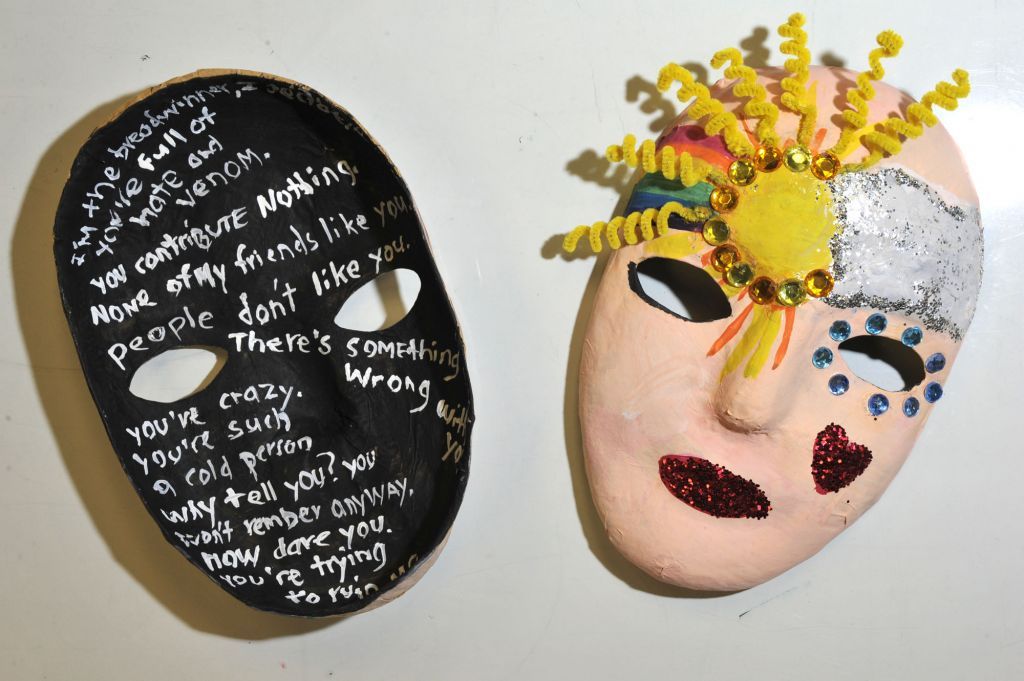 I'm the breadwinner, I
you're full of
hate and
VENOM.
you contribute Nothing.
None of My friends like you.
people don't like you.
There's something
Wrong
with
Yo
you've crazy.
you're such
a cold person
why tell you? you
won't rember anyway.
How dare you.
you're trying
to ruin me